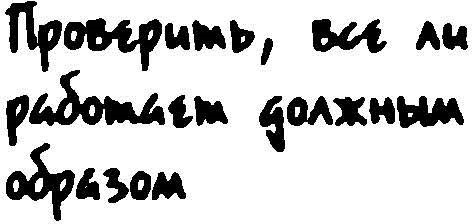 Проверить, все ли
работает должным
образом